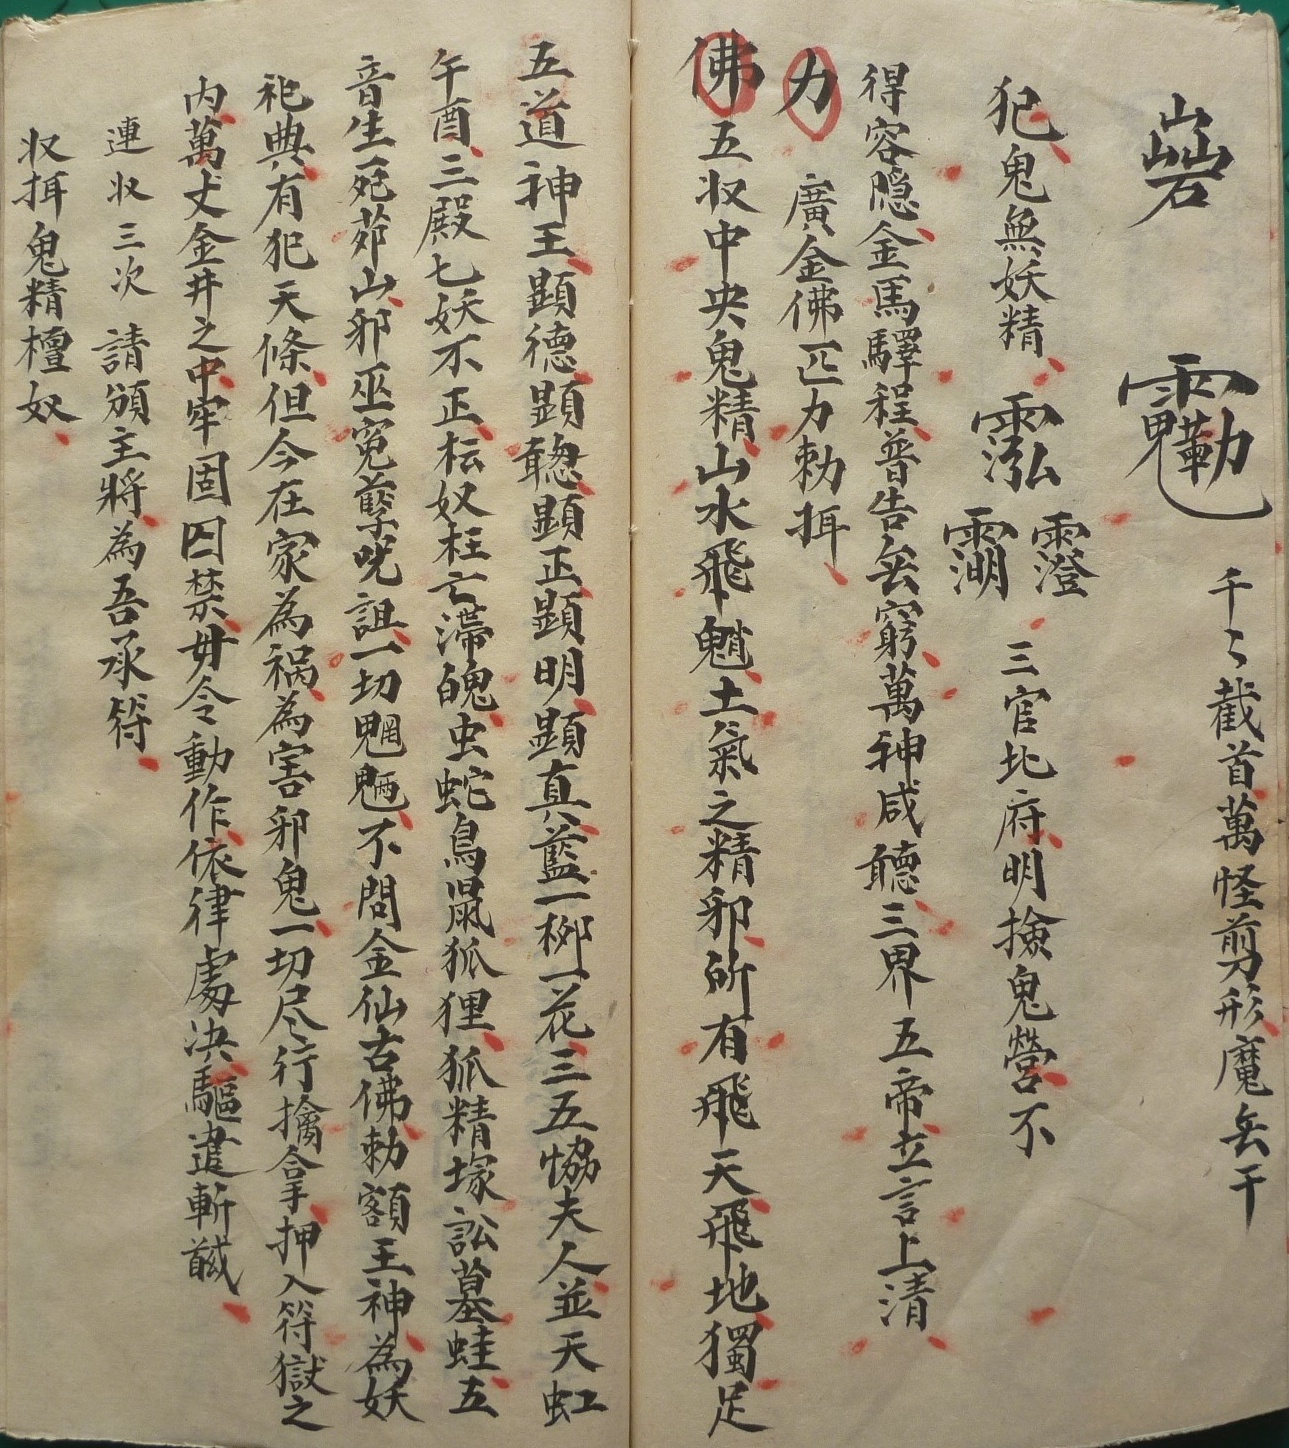 千〻截首萬怪剪形魔兵千
犯鬼無妖精 三官北府明撿鬼營不
得容隠金馬驛程普告無窮萬神咸聽三界五帝立言上清
力 廣金佛匹力勅揖
佛五収中央鬼精山水飛魈土氣之精邪所有飛天飛地獨足
五道神王顕德顕聰顕正顕明顕真藍一柳一花三五協夫人並天虹
午酉三殿七妖不正妘奴枉亡滯魄虫蛇鳥鼠狐狸狐精塚訟墓蛙五
音生死茆山邪巫寃孽呪詛一切魍魎不問金仙古佛勅額王神為妖
祀典有犯天條但今在家為禍為害邪鬼一切尽行擒拿押入符獄之
內萬丈金井之中牢固囚禁毋令動作依律處決驅遣斬馘
連収三次 請頒主將為吾承符
収揖鬼精檀奴